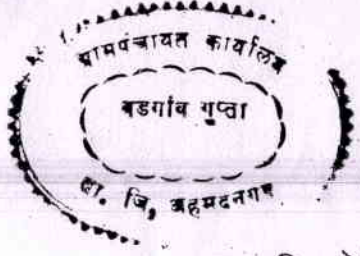 ग्रामपंचायत कार्यालय
वडगांव गुप्ता
ता. जि, अहमदनगर